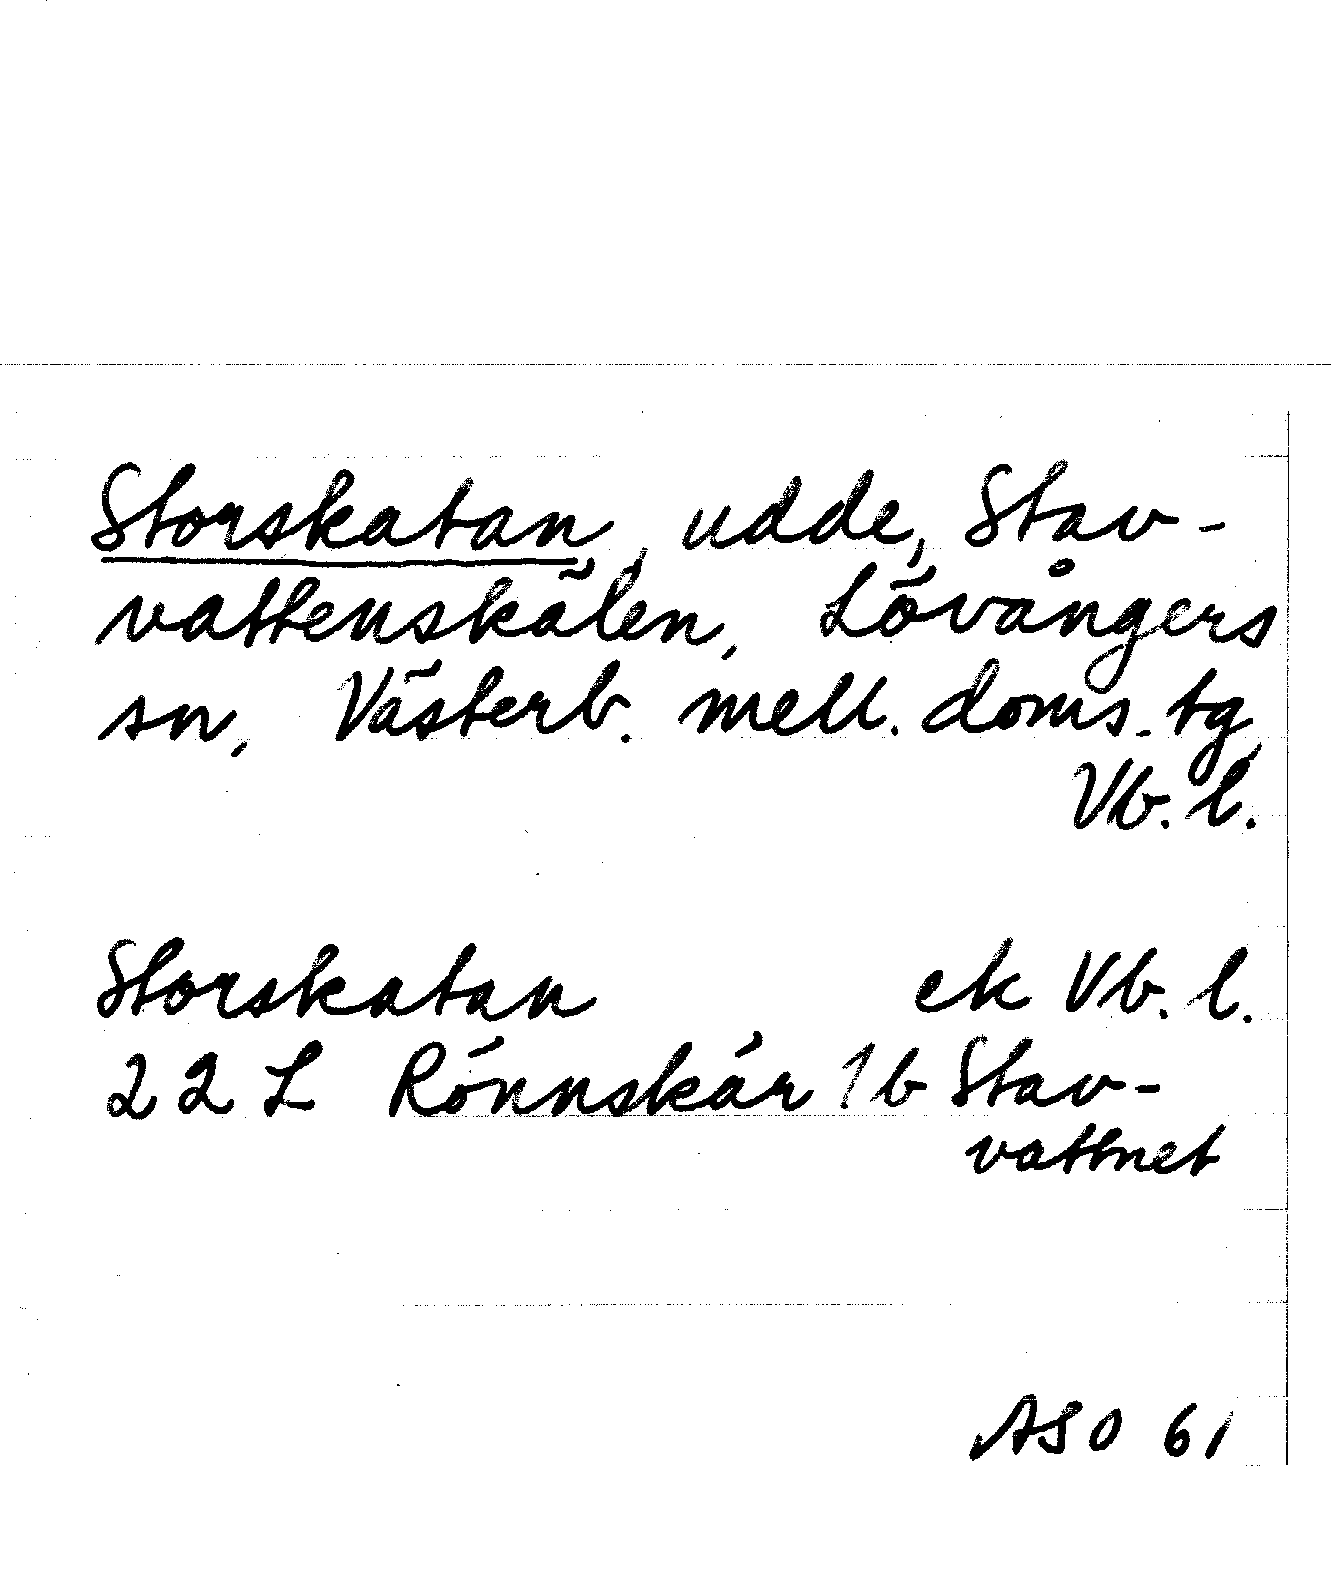 Storskatan, udde, Stav-
vattenskälen, Lövångers
sn, Västerb. mell. doms. tg,
Vb. l.
Storskatan ek Vb. l.
22 L Rönnskär 1b Stav-
vattnet
ASO 61